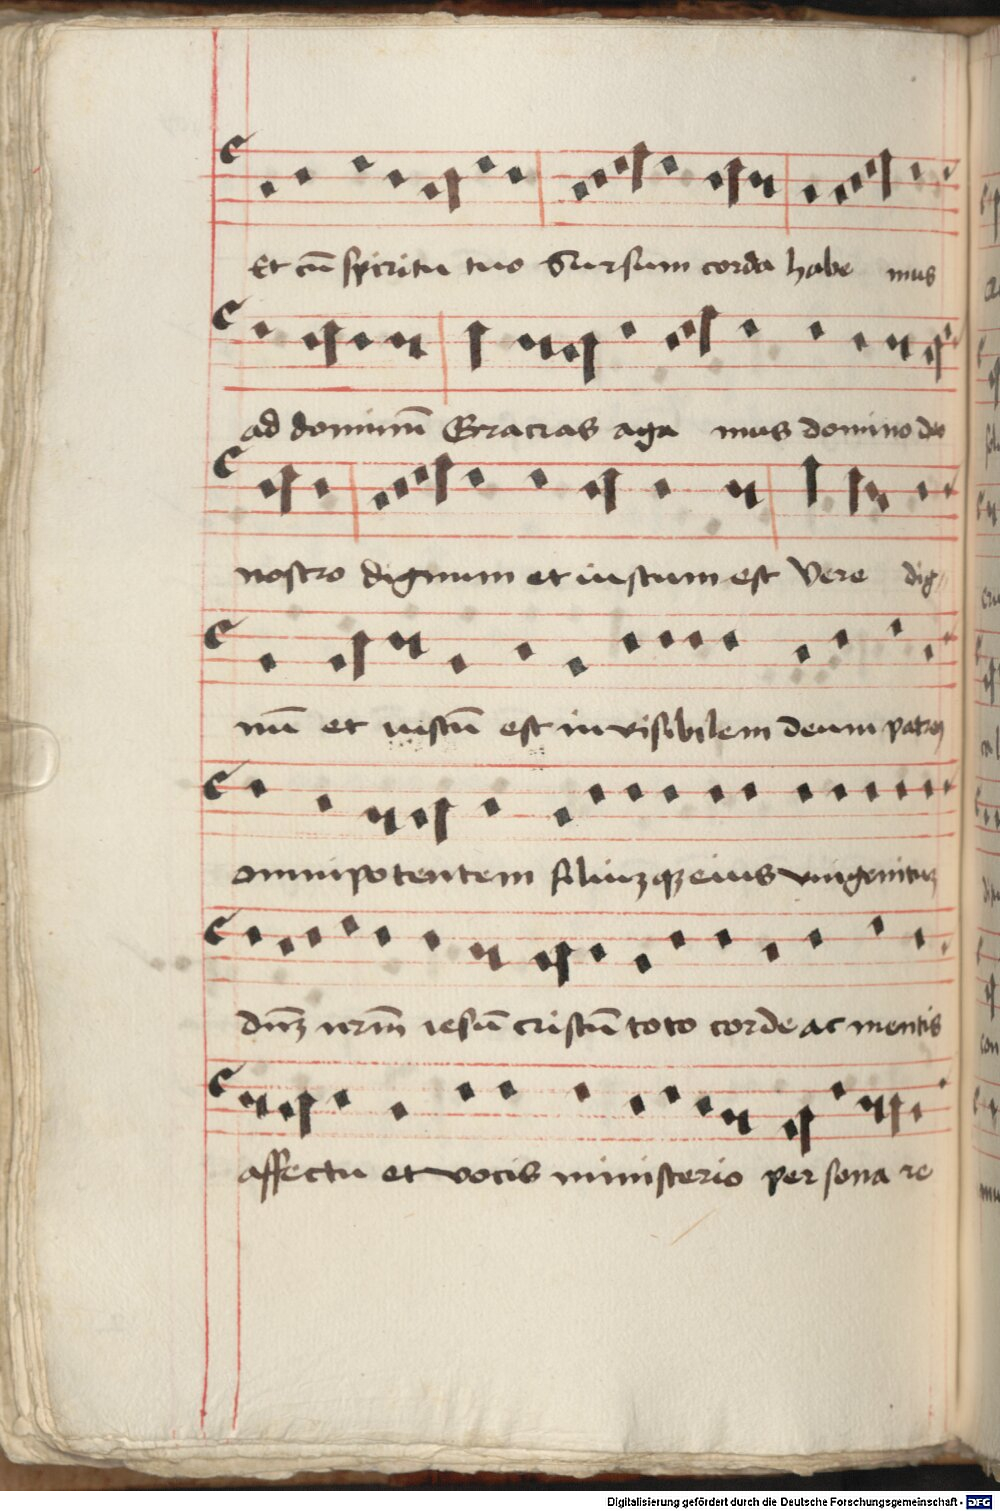 Et cū spiritu tuo Sursum corda habe mus
ad dominū Gracias aga mus domino deo
nostro dignum et iustum est Vere dig
nū et iustū est invisibilem deum patrē
omnipotentem filiuz qz eius vnigenituz
dn̄z nr̄m iesū cristū toto corde ac mentis
affectu et vocis ministerio per sona re
Digitalisierung gefördert durch die Deutsche Forschungsgemeinschaft - DFG